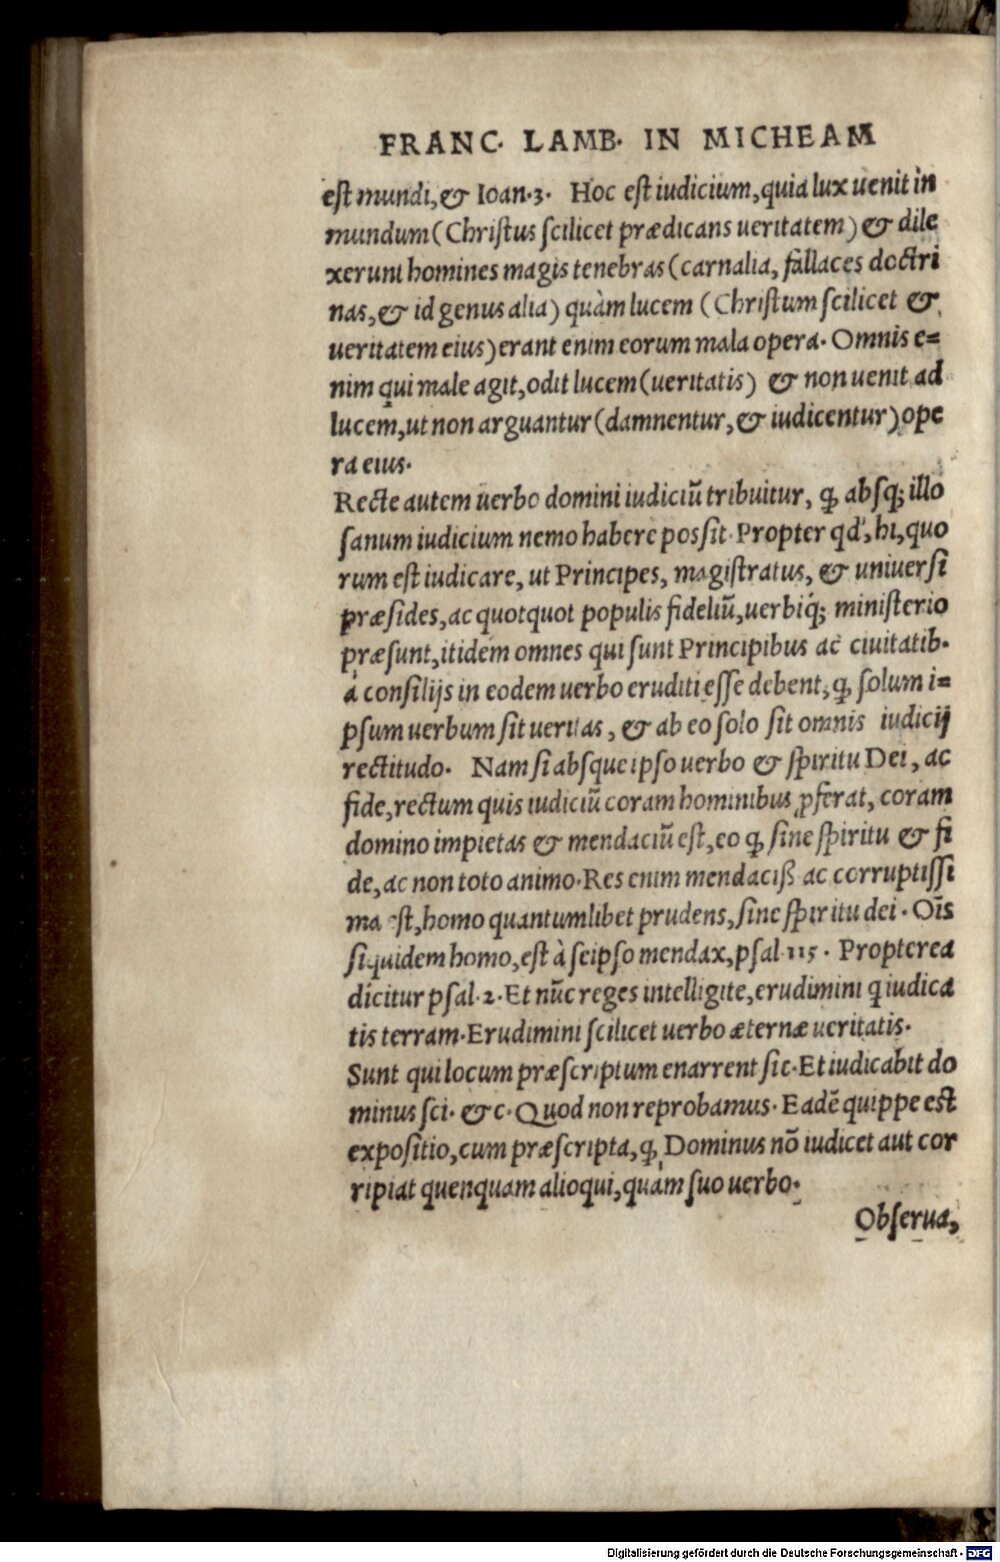 FRANC. LAMB. IN MICHEAM
est mundi, & Ioan.3. Hoc est iudicium, quia lux uenit in
mundum (Christus scilicet prædicans ueritatem) & dile
xerunt homines magis tenebras (carnalia, fallaces doctri
nas, & id genus alia) quàm lucem (Christum scilicet &
ueritatem eius) erant enim eorum mala opera. Omnis e=
nim qui male agit, odit lucem (ueritatis) & non uenit ad
lucem, ut non arguantur (damnentur, & iudicentur) ope
ra eius.
Recte autem uerbo domini iudiciũ tribuitur, ꝙ absq; illo
sanum iudicium nemo habere possit. Propter qd', hi, quo
rum est iudicare, ut Principes, magistratus, & uniuersi
præsides, ac quotquot populis fideliũ, uerbiq́; ministerio
præsunt, itidem omnes qui sunt Principibus ac ciuitatib.
à consilijs in eodem uerbo eruditi esse debent, ꝙ solum i=
psum uerbum sit ueritas, & ab eo solo sit omnis iudicij
rectitudo. Nam si absque ipso uerbo & spiritu Dei, ac
fide, rectum quis iudiciũ coram hominibus ꝓferat, coram
domino impietas & mendaciũ est, eo ꝙ sine spiritu & fi
de, ac non toto animo. Res enim mendaciß ac corruptissi
ma est, homo quantumlibet prudens, sine spiritu dei. Oĩs
siquidem homo, est à seipso mendax, psal.115. Propterea
dicitur psal.2. Et nũc reges intelligite, erudimini q iudica
tis terram. Erudimini scilicet uerbo æternæ ueritatis.
Sunt qui locum præscriptum enarrent sic. Et iudicabit do
minus sci. &c. Quod non reprobamus. Eadẽ quippe est
expositio, cum præscripta, ꝙ Dominus nõ iudicet aut cor
ripiat quenquam alioqui, quàm suo uerbo.
Obserua,
Digitalisierung gefördert durch die Deutsche Forschungsgemeinschaft - DFG